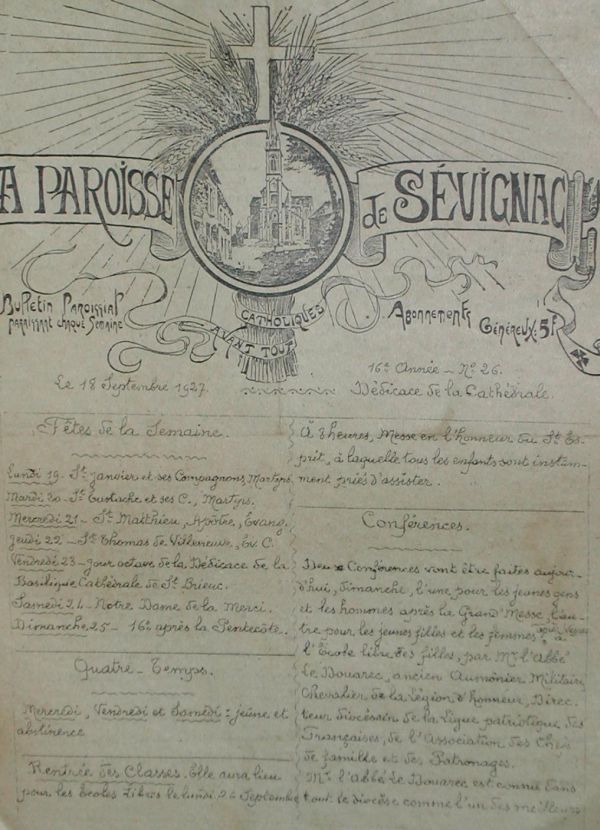 A PAROISSE de SÉVIGNAC
Bulletin Paroissial
paraissant chaque Semaine
CATHOLIQUES
AVANT TOUT
Abonnements
Généreux: 5f
Le 18 Septembre 1927.
16e Année - No 26.
Dédicace de la Cathédrale.
Fêtes de la Semaine.
Lundi 19- St Janvier et ses Compagnons, Martyrs
Mardi 20- St Eustache et ses C., Martyrs.
Mercredi 21- St Matthieu, Apôtre, Evang.
Jeudi 22- St Thomas de Villeneuve, Ev. C.
Vendredi 23- jour octave de la Dédicace de la
Basilique Cathédrale de St Brieuc.
Samedi 24- Notre Dame de la Merci.
Dimanche, 25- 16e après la Pentecôte.
Quatre-Temps.
Mercredi, Vendredi et Samedi: jeûne et
abstinence
Rentrée des Classes. Elle aura lieu
pour les Ecoles Libres le lundi Septembre
À 8 heures, Messe en l'honneur du St Es-
prit, à laquelle tous les enfants sont instam-
ment priés d'assister.
Conférences.
Deux Conférences vont être faites aujour-
d'hui, dimanche, l'une pour les jeunes gens
et les hommes après la Grand'Messe, l'au-
tre pour les jeunes filles et les femmes après Vêpres à
l'École libre des filles, par Mr l'Abbé
Le Douarec, ancien Aumônier Militaire,
Chevalier de la Légion d'honneur, Direc-
teur diocésain de la Ligue patriotique des
Françaises, de l'Association des Chefs
de famille et des Patronages.
Mr l'abbé Le Douarec est connu dans
tout le diocèse comme l'un des meilleurs